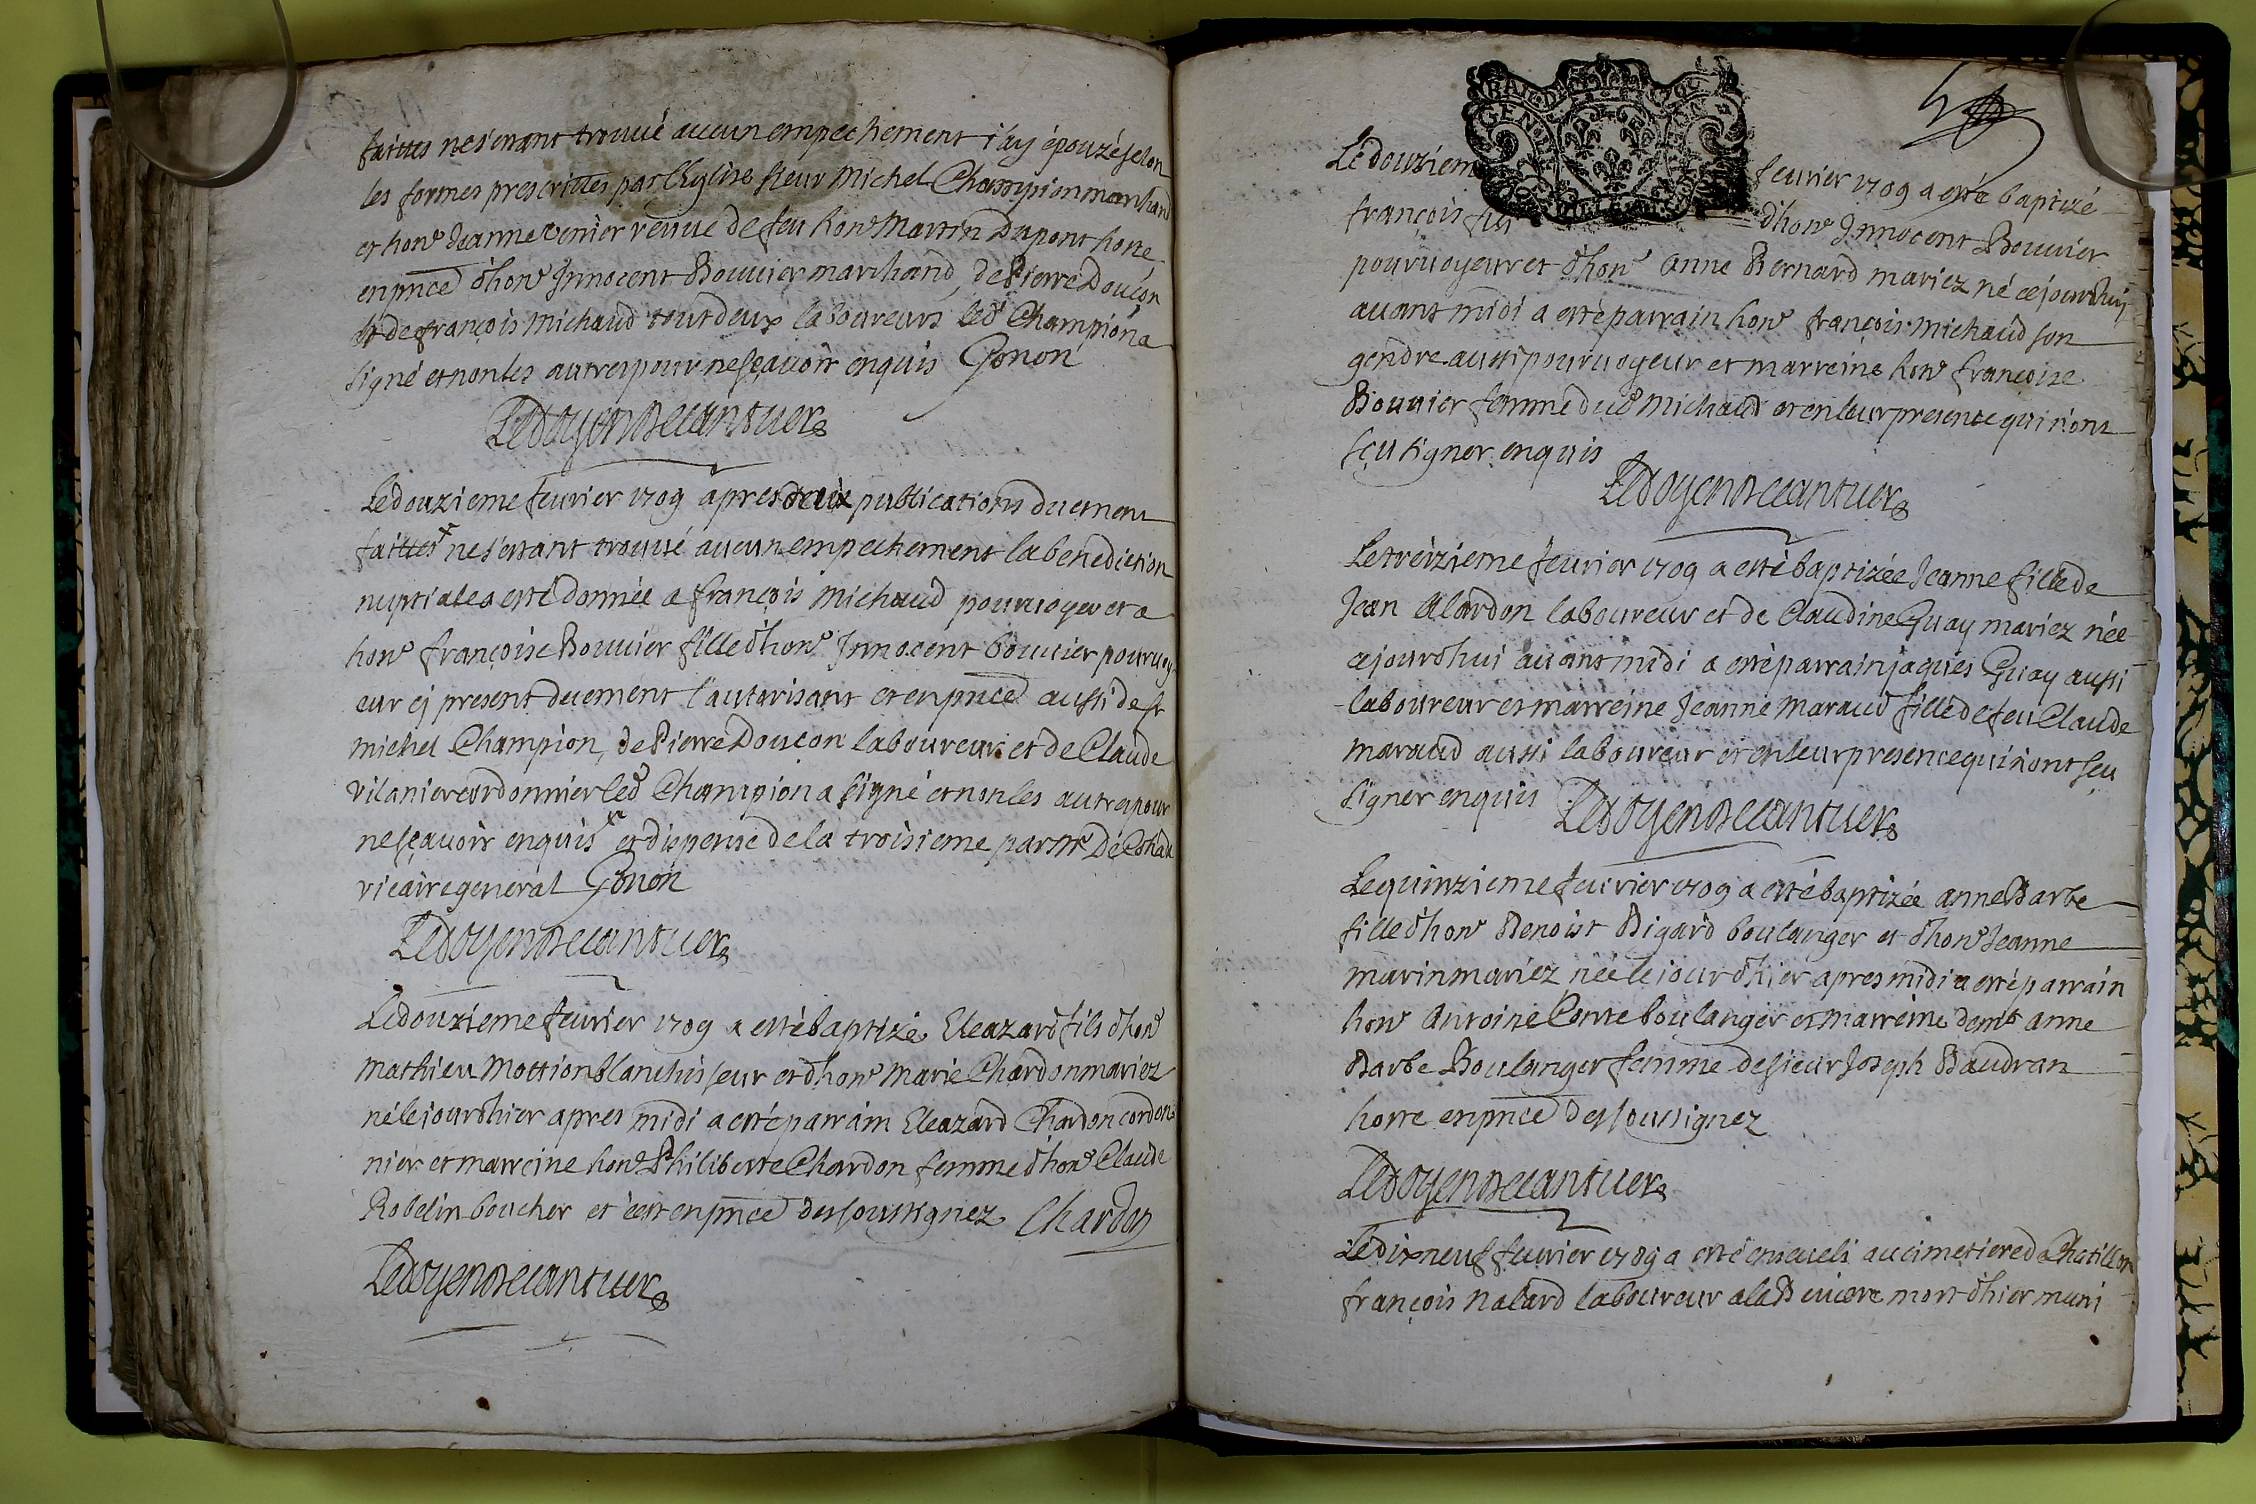 faittes nes'etant trouué aucun empechement i'ay épouzé selon
les formes prescrittes par l'Eglise sieur Michel Champion marchand
et hon^e Jeanne venier veuue de feu hon^e Martin Dupont hoste
en pnce d'hon^e Innocent Bouuier marchand, de Pierre Douçon
et de françois Michaud tout deux laboureurs led Champion a
signé et non les autres pour ne sçauoir enquis Gonon
Ledoyen
Le douzieme feurier 1709 apres deux publications duement
faittes nes'estant trouué aucun empechement la benediction
nuptiale a esté donnée a françois Michaud pouruoyeur et a
hon^e françoise Bouuier fille d'hon^e Innocent bouuier pouruoy
eur cj present duement l'autorisant et en pnce aussi de s^r
michel Champion, de Pierre Douçon laboureur et de Claude
vilanier cordonnier led Champion a signé et non les autres pour
ne sçauoir enquis et dispense de la troisieme par M^r De
vicaire general Gonon
Ledoyen
Le douzieme feurier 1709 a esté baptizé Eleazard fils d'hon^e
Mathieu Mottion blanchisseur et d'hon^e Marie Chardon mariez
né le jour d'hier apres midi a esté parrain Eleazard Chardon cordon
nier et marreine hon^e Philiberte Chardon femme d'hon^e Claude
Robelin boucher et c'est en pnce des soussignez Chardon
Ledoyen
Le douziem feurier 1709 a esté baptizé
françois fils d'hon^e Innocent Bouuier
pouruoyeur et d'hon^e Anne Bernard mariez né cejourdhuy
auant midi a esté parrain hon^e françois Michaud son
gendre aussi pouruoyeur et marreine hon^e françoise
Bouuier femme dud Michaud et en leur presence qui n'ont
sçu signer enquis
Ledoyen
Le treizieme feurier 1709 a esté baptizée Jeanne fille de
Jean Alardon laboureur et de Claudine Guay mariez née
cejourd'hui auant midi a esté parrain jaques Guay aussi
laboureur et marreine Jeanne Maraud fille de feu Claude
Maraud aussi laboureur et en leur presence qui n'ont sçu
signer enquis
Ledoyen
Le quinzieme feurier 1709 a esté baptizée anne Barbe
fille d'hon^e Benoist Bigard boulanger et d'hon^e Jeanne
marin mariez née le jour d'hier apres midi a esté parrain
hon^e Antoine Conte boulanger et marreine dem^le anne
Barbe Boulanger femme de sieur Joseph Baudran
hoste en pnce des soussignez
Ledoyen
Le dixneuf feurier 1709 a esté enseueli au cimetiere de Chatillon
françois Nalard laboureur a la mort d'hier muni